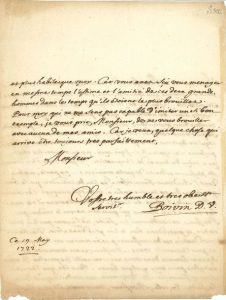 et plus habile que moy. Car vous avez sçu vous menager
en mesme temps l'estime et l'amitié de ces deux grands
hommes dans les temps qu'ils étoient le plus brouillez.
Pour moy qui ne me sens pas capable d'imiter un si bon
exemple, je vous prie, Monsieur, de ne vous brouiller
avec aucun de mes amis. Car je veux, quelque chose qui
arrive être toujours tres parfaitement,
Monsieur
Vostre tres humble et tres obeist
servitr
Boivin D. V.
Ce 19 May
1722